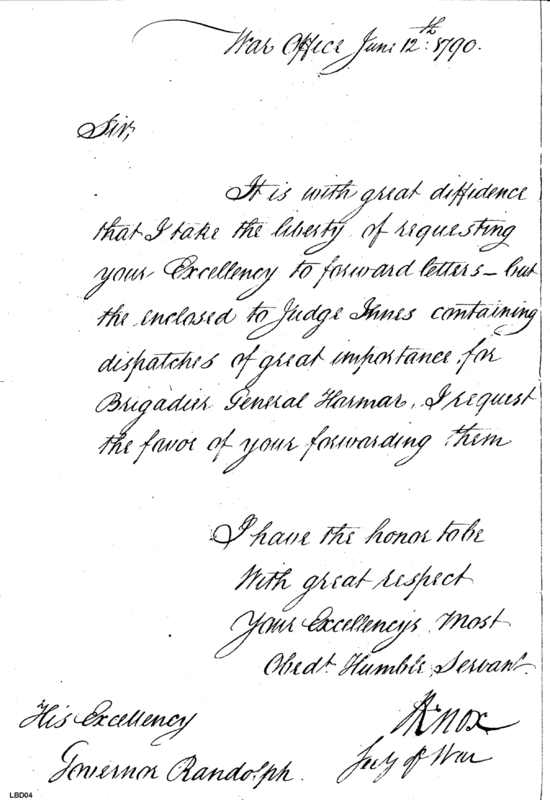 War Office June 12th: 1790.
Sir,
It is with great diffidence
that I take the liberty of requesting
your Excellency to forward letters – but
the enclosed to Judge Innes containing
dispatches of great importance for
Brigadier General Harmar, I request
the favor of your forwarding them
I have the honor to be
With great respect
Your Excellency's Most
Obedt. Humble Servant.
HKnox
Secy of War
His Excellency
Governor Randolph.
LBD04